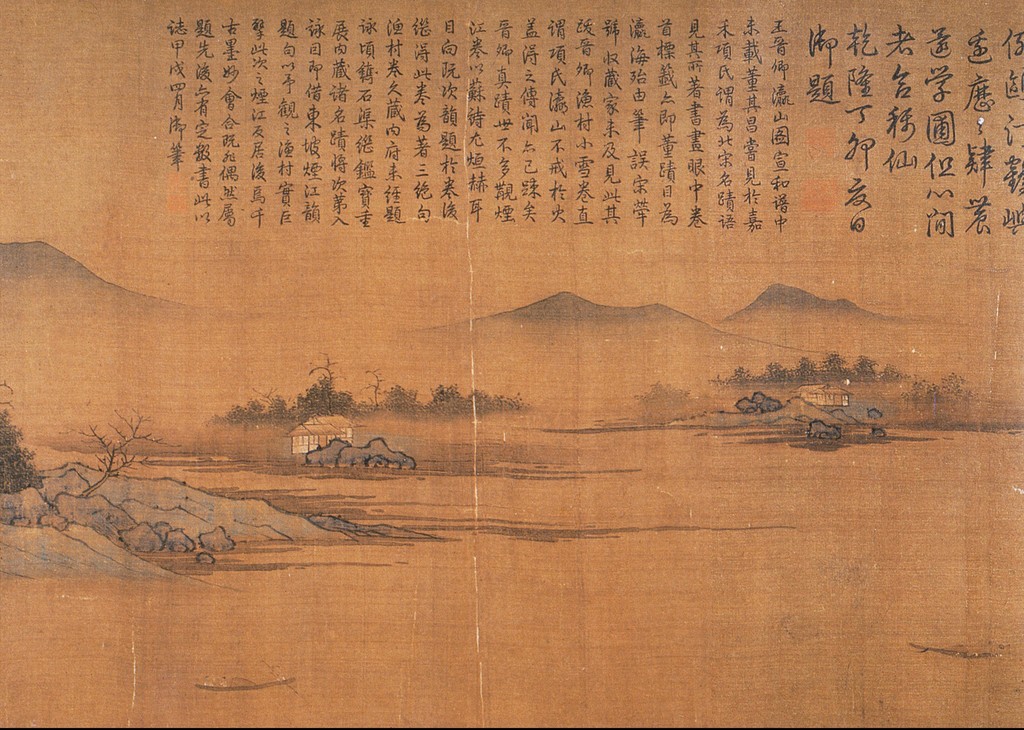 老合称仙
乾隆丁卯夏日
御題
王晉卿瀛山圖宣和譜中
未載董其昌嘗見於嘉
禾項氏謂為北宋名蹟語
見其所著書畫眼中卷
首標籤亦即董蹟目為
瀛海殆由筆誤宋犖
號收藏家未及見此其
跋晉卿漁村小雪卷直
謂項氏瀛山不戒於火
蓋得之傳聞亦已踈矣
晉卿真蹟世不多觀煙
江卷以蘇詩尤烜赫耳
目向既次韻題於卷後
繼得此卷為著三絕句
漁村卷久藏內府未經題
詠頃鐫石渠繼鑑寶重
展內藏諸名蹟將次第入
詠因即借東坡煙江韻
題句以予觀之漁村實巨
擘此次之煙江又居後焉千
古墨妙會合既非偶然屬
題先後亦有定數書此以
誌甲戌四月御筆